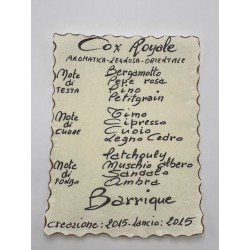 Cox Royale
AROMATICA-LEGNOSA-ORIENTALE
Note di TESTA
Bergamotto
Pepe rosa
Pino
Petitgrain
Note di CUORE
Timo
Cipresso
Cuoio
Legno Cedro
Note di FONDO
Patchouly
Muschio albero
Sandalo
Ambra
Barrique
Creazione: 2015-Lancio: 2015